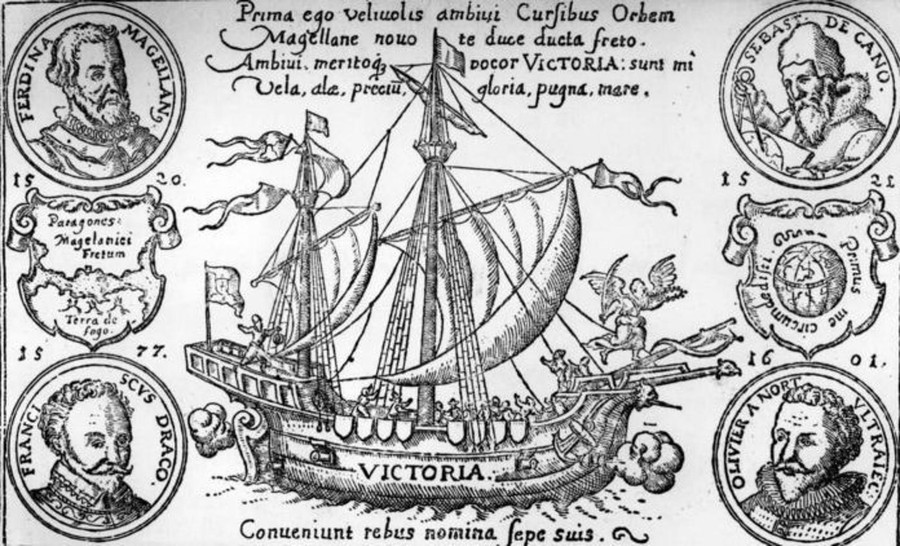 Prima ego velivolis ambivi Cursibus Orbem
Magellane novo te duce ducta freto.
Ambivi, meritoqꝫ vocor VICTORIA: sunt mî
Vela, alæ, preciū, gloria, pugna, mare.
FERDINĀ MAGELLANꝰ.
15 20.
SEBAST. DE CANO.
15 21
Paragones:
Magelanici
Fretum
Terra de
fogo.
Primus me circumdedisti
15 77.
FRANCISCVS DRACO.
16 01.
OLIVIER A NORT VLTRAIEC:
VICTORIA.
Conveniunt rebus nomina sepe suis.